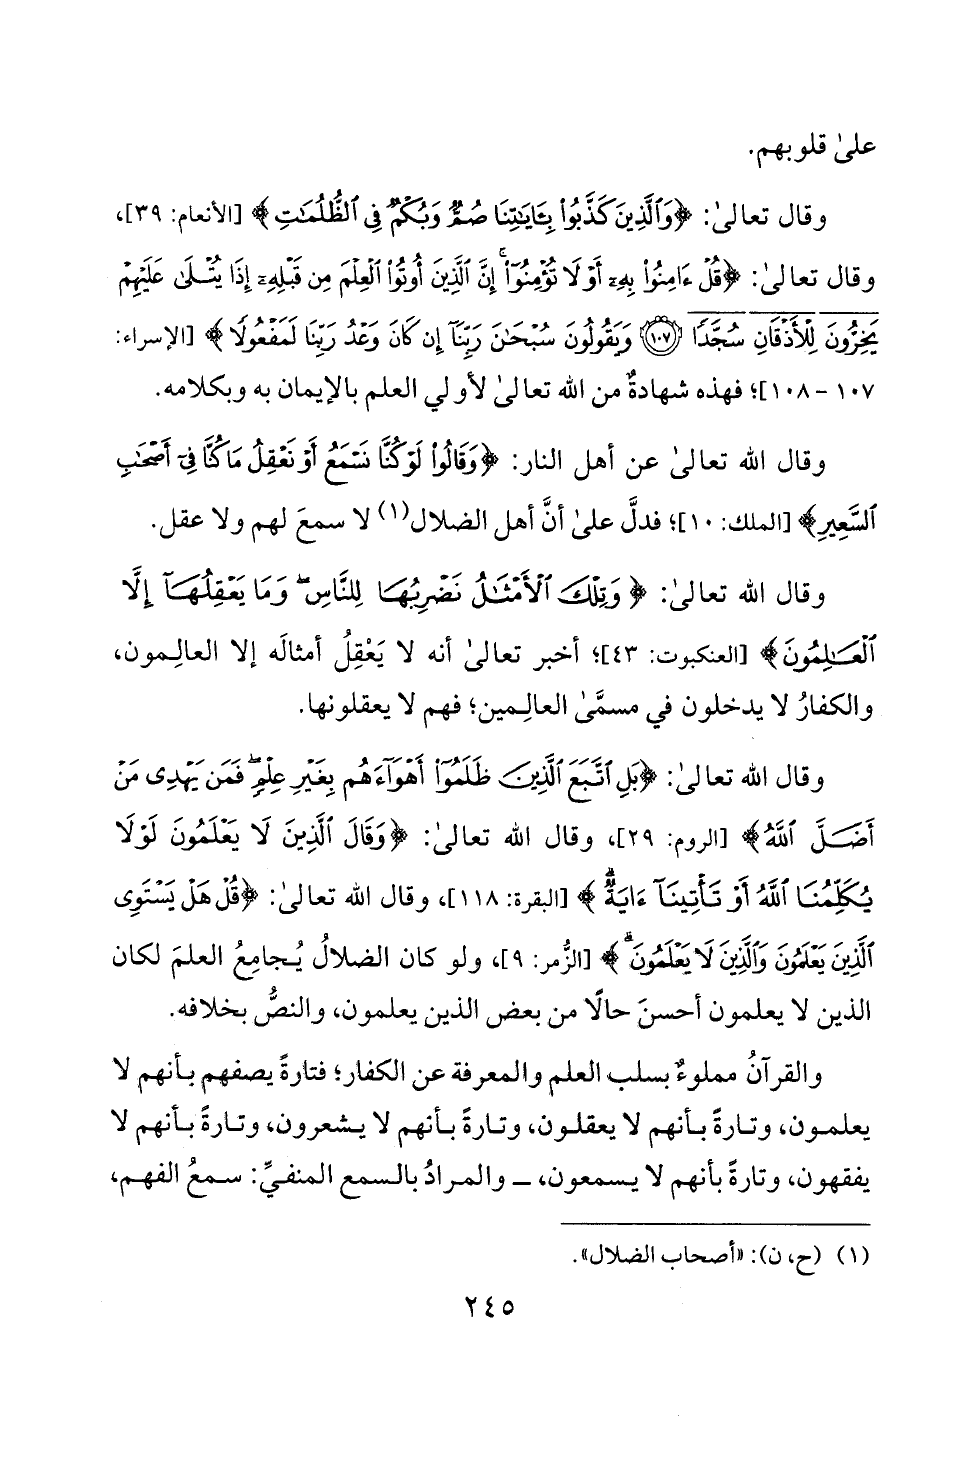 علىٰ قلوبهم.
وقال تعالىٰ: ﴿وَٱلَّذِينَ كَذَّبُوا۟ بِـَٔايَـٰتِنَا صُمٌّ وَبُكْمٌ فِى ٱلظُّلُمَـٰتِ﴾ [الأنعام: ٣٩]،
وقال تعالىٰ: ﴿قُلْ ءَامِنُوا۟ بِهِۦٓ أَوْ لَا تُؤْمِنُوٓا۟ ۚ إِنَّ ٱلَّذِينَ أُوتُوا۟ ٱلْعِلْمَ مِن قَبْلِهِۦٓ إِذَا يُتْلَىٰ عَلَيْهِمْ
يَخِرُّونَ لِلْأَذْقَانِ سُجَّدًا ۝١٠٧ وَيَقُولُونَ سُبْحَـٰنَ رَبِّنَآ إِن كَانَ وَعْدُ رَبِّنَا لَمَفْعُولًا﴾ [الإسراء:
١٠٧ - ١٠٨]؛ فهذه شهادةٌ من الله تعالىٰ لأولي العلم بالإيمان به وبكلامه.
وقال الله تعالىٰ عن أهل النار: ﴿وَقَالُوا۟ لَوْ كُنَّا نَسْمَعُ أَوْ نَعْقِلُ مَا كُنَّا فِىٓ أَصْحَـٰبِ
ٱلسَّعِيرِ﴾ [الملك: ١٠]؛ فدلَّ علىٰ أنَّ أهل الضلال(١) لا سمعَ لهم ولا عقل.
وقال الله تعالىٰ: ﴿وَتِلْكَ ٱلْأَمْثَـٰلُ نَضْرِبُهَا لِلنَّاسِ ۖ وَمَا يَعْقِلُهَآ إِلَّا
ٱلْعَـٰلِمُونَ﴾ [العنكبوت: ٤٣]؛ أخبر تعالىٰ أنه لا يَعْقِلُ أمثالَه إلا العالِمون،
والكفارُ لا يدخلون في مسمَّىٰ العالِمين؛ فهم لا يعقلونها.
وقال الله تعالىٰ: ﴿بَلِ ٱتَّبَعَ ٱلَّذِينَ ظَلَمُوٓا۟ أَهْوَآءَهُم بِغَيْرِ عِلْمٍ ۖ فَمَن يَهْدِى مَنْ
أَضَلَّ ٱللَّهُ﴾ [الروم: ٢٩]، وقال الله تعالىٰ: ﴿وَقَالَ ٱلَّذِينَ لَا يَعْلَمُونَ لَوْلَا
يُكَلِّمُنَا ٱللَّهُ أَوْ تَأْتِينَآ ءَايَةٌ ۗ﴾ [البقرة: ١١٨]، وقال الله تعالىٰ: ﴿قُلْ هَلْ يَسْتَوِى
ٱلَّذِينَ يَعْلَمُونَ وَٱلَّذِينَ لَا يَعْلَمُونَ ۗ﴾ [الزُّمر: ٩]، ولو كان الضلالُ يُجامِعُ العلمَ لكان
الذين لا يعلمون أحسنَ حالًا من بعض الذين يعلمون، والنصُّ بخلافه.
والقرآنُ مملوءٌ بسلب العلم والمعرفة عن الكفار؛ فتارةً يصفهم بأنهم لا
يعلمون، وتارةً بأنهم لا يعقلون، وتارةً بأنهم لا يشعرون، وتارةً بأنهم لا
يفقهون، وتارةً بأنهم لا يسمعون، ــ والمرادُ بالسمع المنفيِّ: سمعُ الفهم،
(١) (ح، ن): «أصحاب الضلال».
٢٤٥